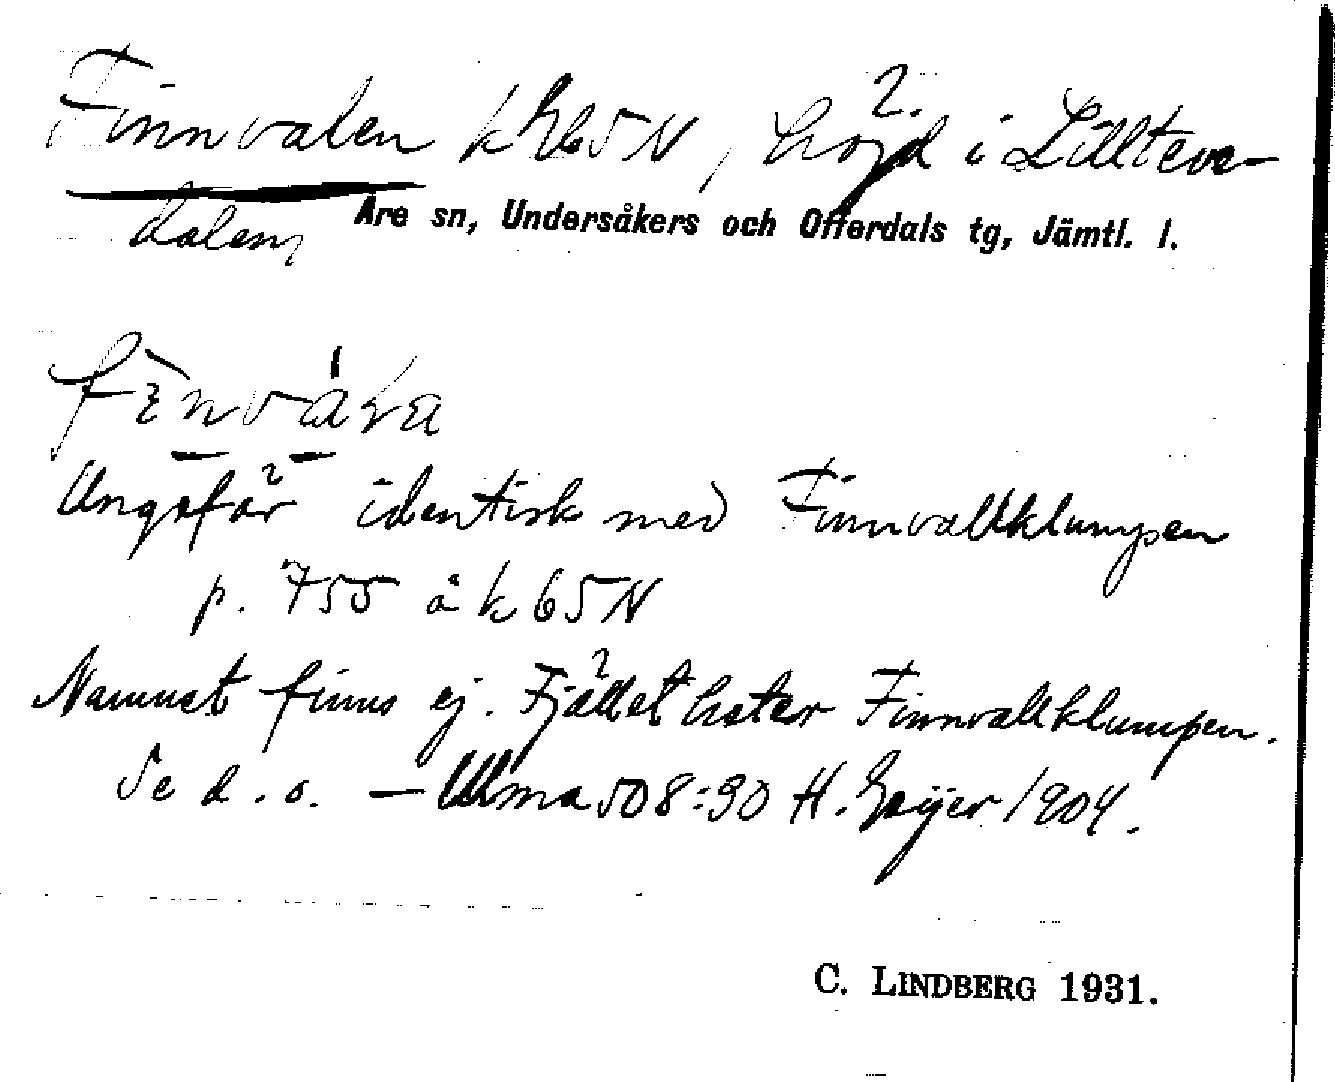 Finnvalen k 65 N, höjd i Lillteve-
dalen,
Åre sn, Undersåkers och Offerdals tg, Jämtl. l.
Ungefär identisk med Finnvallklumpen
p. 755 å k 65 N
Namnet finns ej. Fjället heter Finnvallklumpen.
Se d. o. — Ulma 508:90 H. Geijer 1904.
C. LINDBERG 1931.